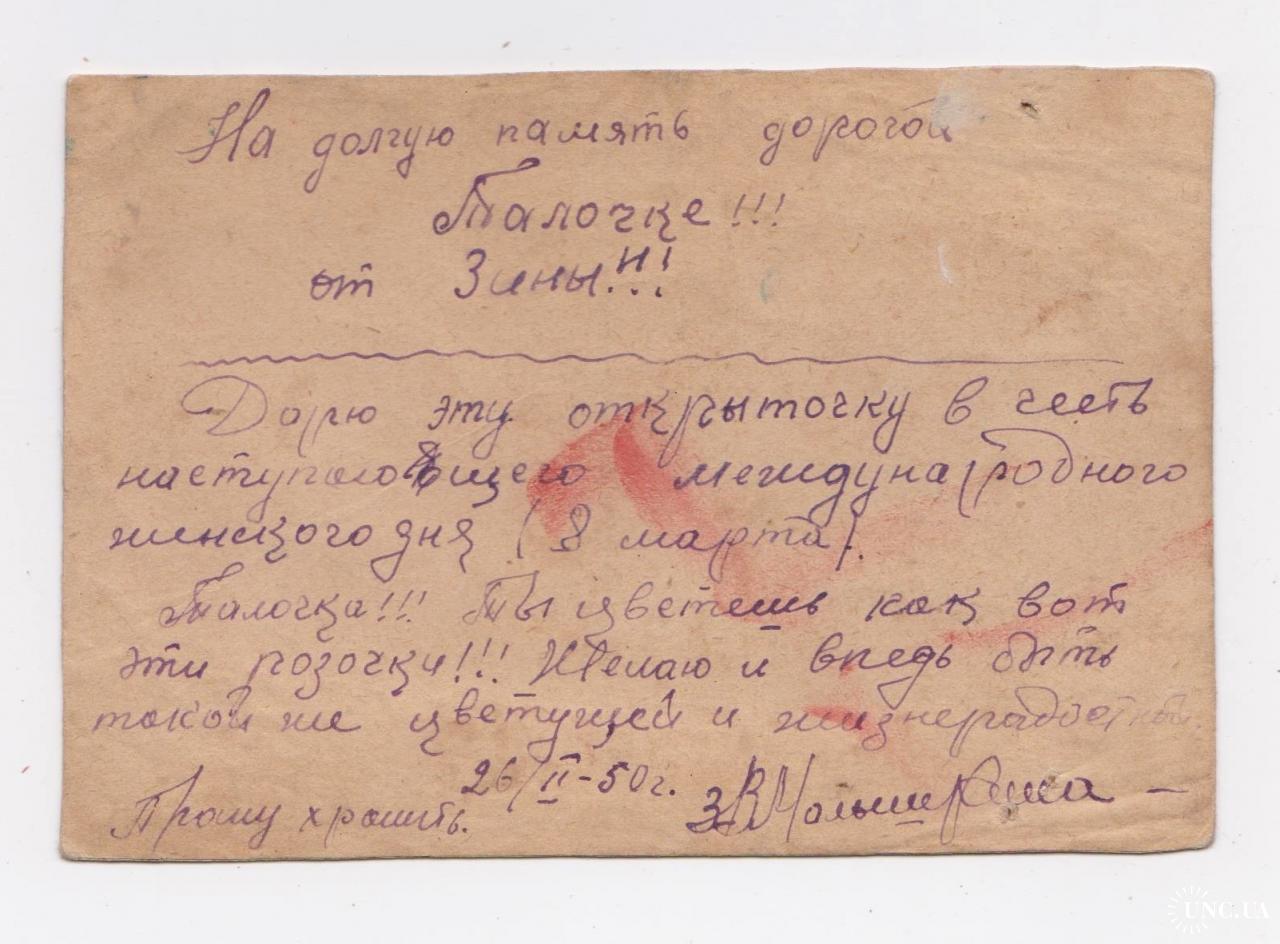 На долгую память дорогой
Талочке!!!
от Зины!!!
Дарю эту открыточку в честь
наступающего международного
женского дня (8 марта).
Талочка!!! Ты цветешь как вот
эти розочки!!! Желаю и впедь быть
такой же цветущей и жизнерадостной.
26/II-50г.
Прошу хранить.
UNC.UA